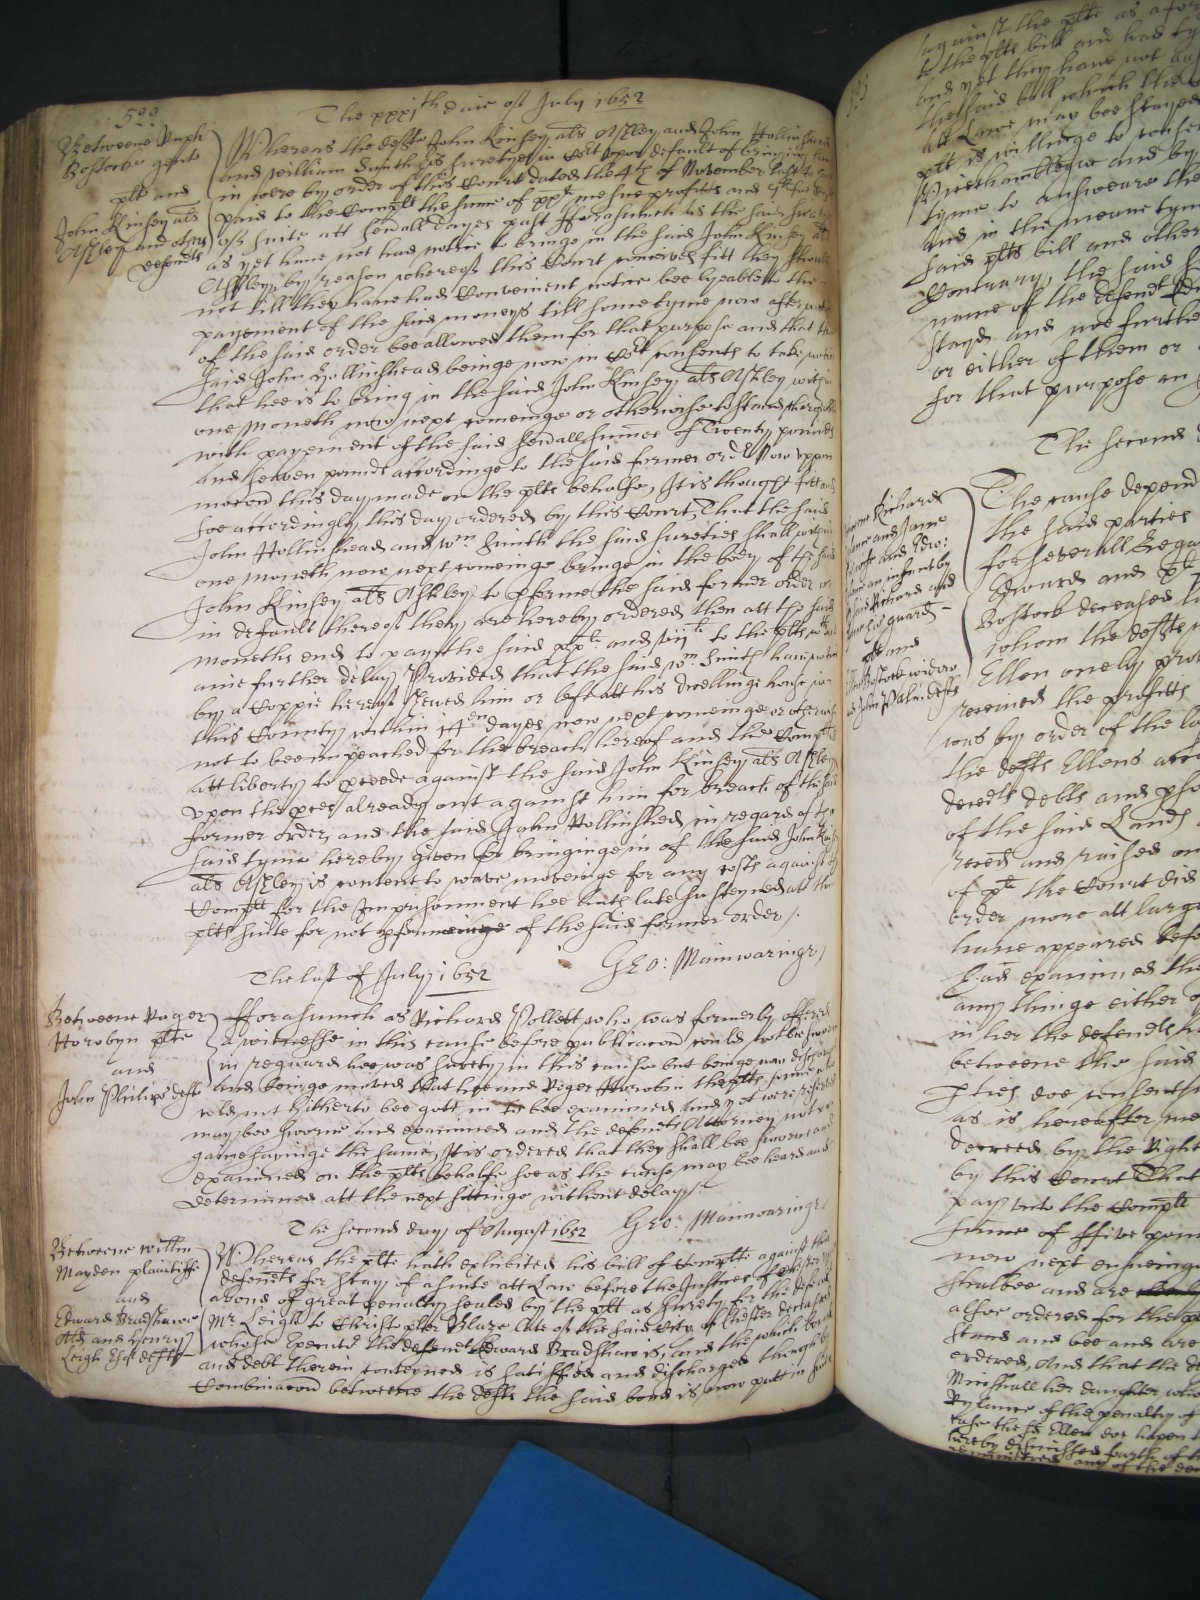 The xxxith daie of July 1652
Betweene Raph
Bostocke gent
plt and
John Kinsey als
Astley and others
defendts
Whereas the defts John Kinsey als Astley and John Hollinshead
and William Smith his suretyes in Court upon default of bringing him
in were by order of this Court dated the 4th of November last to
paid to the Complt the sume of xxl mesne profitts and
of suite att severall dayes past fforasmuch as the said suretyes
as yet have not had notice to bringe in the said John Kinsey als
Astley, by reason whereof this Court conceives fitt they should
not till they have had Convenient notice bee lyeable to the
payement of the said moneys till some tyme now after notice
of the said order bee allowed them for that purpose and that the
said John Hollinshead beinge now in Court consents to take notice
that hee is to bring in the said John Kinsey als Astley within
one moneth now next comeinge or otherwise to stand chargeable
with payement of the said severall sumes of Twenty pounds
and seaven pounds accordinge to the said former order Now uppon
mocon this day made on the plts behalfe, It is thought fitt and
soe accordingly this day ordered by this Court, That the said
John Hollinshead and Wm Smith the said sureties shall within
one moneth now next comeinge bringe in the body of the said
John Kinsey als Astley to pforme the said former order or
in default thereof they are hereby ordered then att the said
moneths end to pay the said xxl and vijl to the plt without
anie further delay Provided that the said Wm Smith have notice
by a Coppie hereof shewed him or left att his dwellinge house in
this County within 14en dayes now next comeinge or otherwise
not to bee impeached for the breach hereof and the Complt
att liberty to pceede against the said John Kinsey als Astley
upon the pces already out against him for breach of the said
former order, and the said John Hollinshed, in regard of the
said tyme hereby given for bringinge in of the said John Kinsey
als Astley is content to wave moveinge for any costs against the
Complt for the Imprisonment hee hath late susteyned att the
plts suite for not pformeinge of the said former order /.
Geo: Mainwaringe /
The last of July 1652
Betweene Roger
Horobyn plte
and
John Philips deft
fforasmuch as Richard Pollett who was formerly offered
a witnesse in this cause before publicacon could not bee sworne
in reguard hee was surety in this cause but beinge now discharged
and beinge moved that hee and Roger Horobin the plts sonne who
cold not hitherto bee gott in to bee examined and yet were
may bee sworne and examined and the defendts Attorney not
gainesayinge the same, It is ordered that they shall bee sworne and
examined on the plts behalfe soe as the cause may bee heard and
determined att the next sittinge without delay /.
Geo: Mainwaringe /
The second day of August 1652
Betweene Willm
Mayden plaintiffe
and
Edward Bradshawe
and Henry
Leigh Esqr defts
Whereas the plte hath exhibited his bill of Complte against the
defendts for stay of a suite att Law before the Justice of Chester
a bond of great penalty sealed by the plt as surety for the defendt
Mr Leigh to Christopher Blaze late of the said Citty of Chester deceased
whose Executr the defent Edward Bradshaw is, and the which bond
and debt therein conteyned is satisfied and discharged though by
Combinacon betweene the defts the said bond is now putt in suite
against the plte as afore
to the plts bill and had ty
and yet they have not
the said bill which the
att Law may bee stayed
plt is willinge to
tyme to answeare the
And in the meane tyme
said plts bill and other
Contrary, the said
name of the defendt
stayd and noe further
or either of them or
for that purpose any
The second
Richard
and Jane
and Edw:
an infant by
said Richard and
guard
and
Bostock widow
and John Palin defts
The cause depend
the said parties
for severall Legac
Edward and
Bostock deceased
whom the defts
Ellen onely prov
received the profitts
was by order of the
the defts Ellens acco
decedts debts and
of the said Lands
receed and raised on
of plt the Court did
order more att large
have appeared before
had examined the
any thinge either
in her the defendts
betweene the said
pties doe consent
as is hereafter me
decreed by the Right
by this Court That
pay unto the Complt
sume of ffive poun
now next ensueinge
shalbee and are
alsoe ordered for the
stand and bee and are
ordered, And that the de
Minshall her daughter who
Rylance of the penalty of
case the sd Ellen doe happen
hereby dismissed forth of
any of the